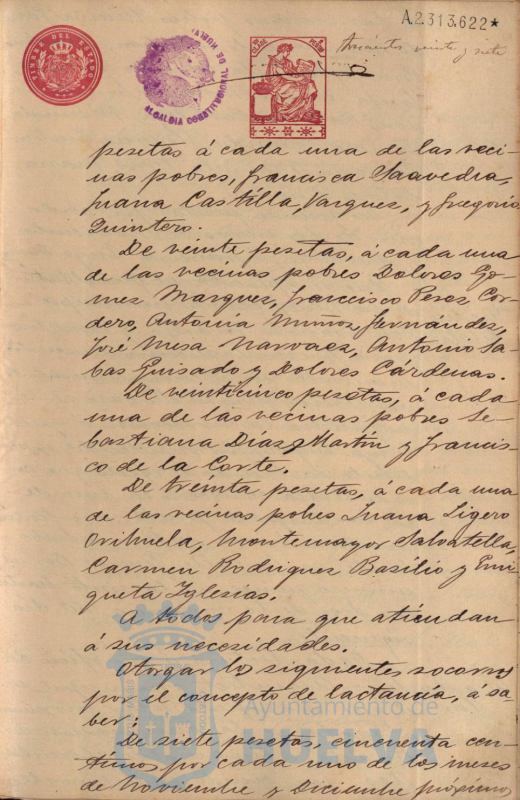 A.2.313.622*
TIMBRE DEL ESTADO
ALCALDIA CONSTITUCIONAL DE HUELVA
trescientos veinte y siete
pesetas á cada una de las veci-
nas pobres, Francisca Saavedra,
Juana Castilla, Vazquez, y Gregorio
Quintero.
De veinte pesetas, á cada una
de las vecinas pobres Dolores Go-
mez Marquez, Francisco Perez Cor-
dero, Antonia Muñoz Hernández,
José Mesa Narvaez, Antonio Sa-
bas Guisado y Dolores Cárdenas.
De veinticinco pesetas, á cada
una de las vecinas pobres Se-
bastiana Díaz Martín y Francis-
co de la Corte.
De treinta pesetas, á cada una
de las vecinas pobres Juana Ligero
Orihuela, Montemayor Salvatella,
Carmen Rodriguez Basilio y Enri-
queta Iglesias.
A todos para que atiendan
á sus necesidades.
Otorgar los siguientes socorros
por el concepto de lactancia, á sa-
ber:
Ayuntamiento de
HUELVA
De siete pesetas, cincuenta cen-
timos por cada uno de los meses
de Noviembre y Diciembre próximos